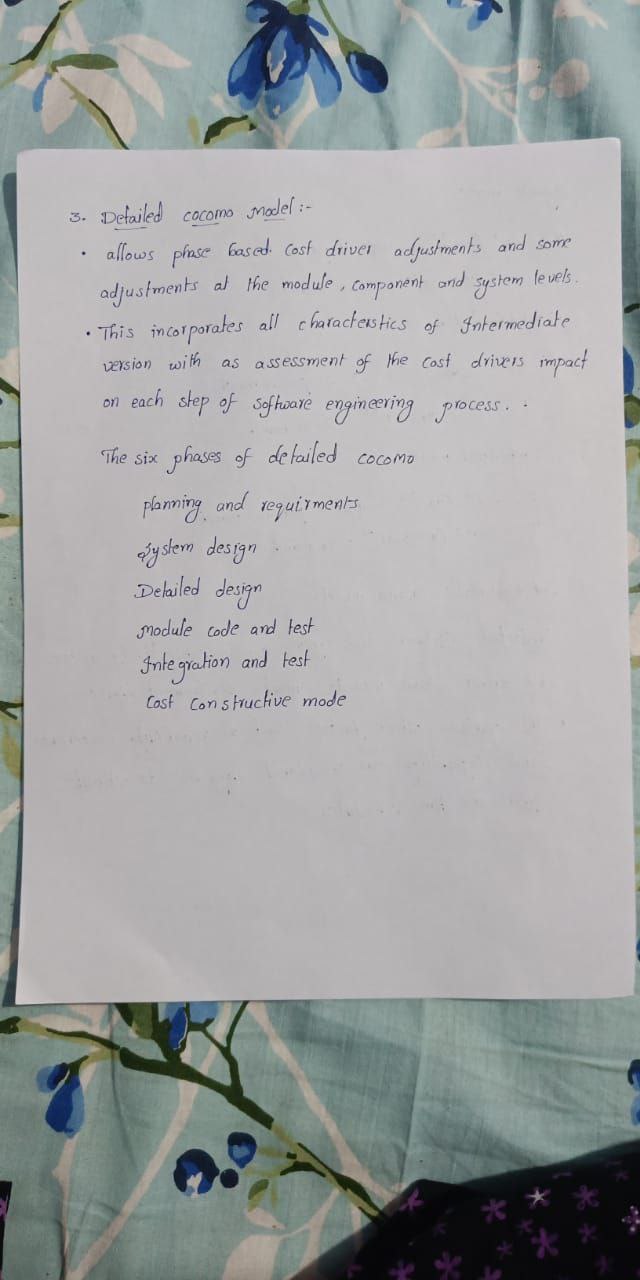 3. Detailed cocomo Model :-
• allows phase based. Cost driver adjustments and some
adjustments at the module, Component and system levels.
• This incorporates all characterstics of Intermediate
version with as assessment of the cost drivers impact
on each step of software engineering process.
The six phases of detailed cocomo
planning and requirments
System design
Detailed design
Module code and test
Integration and test
Cost Constructive mode